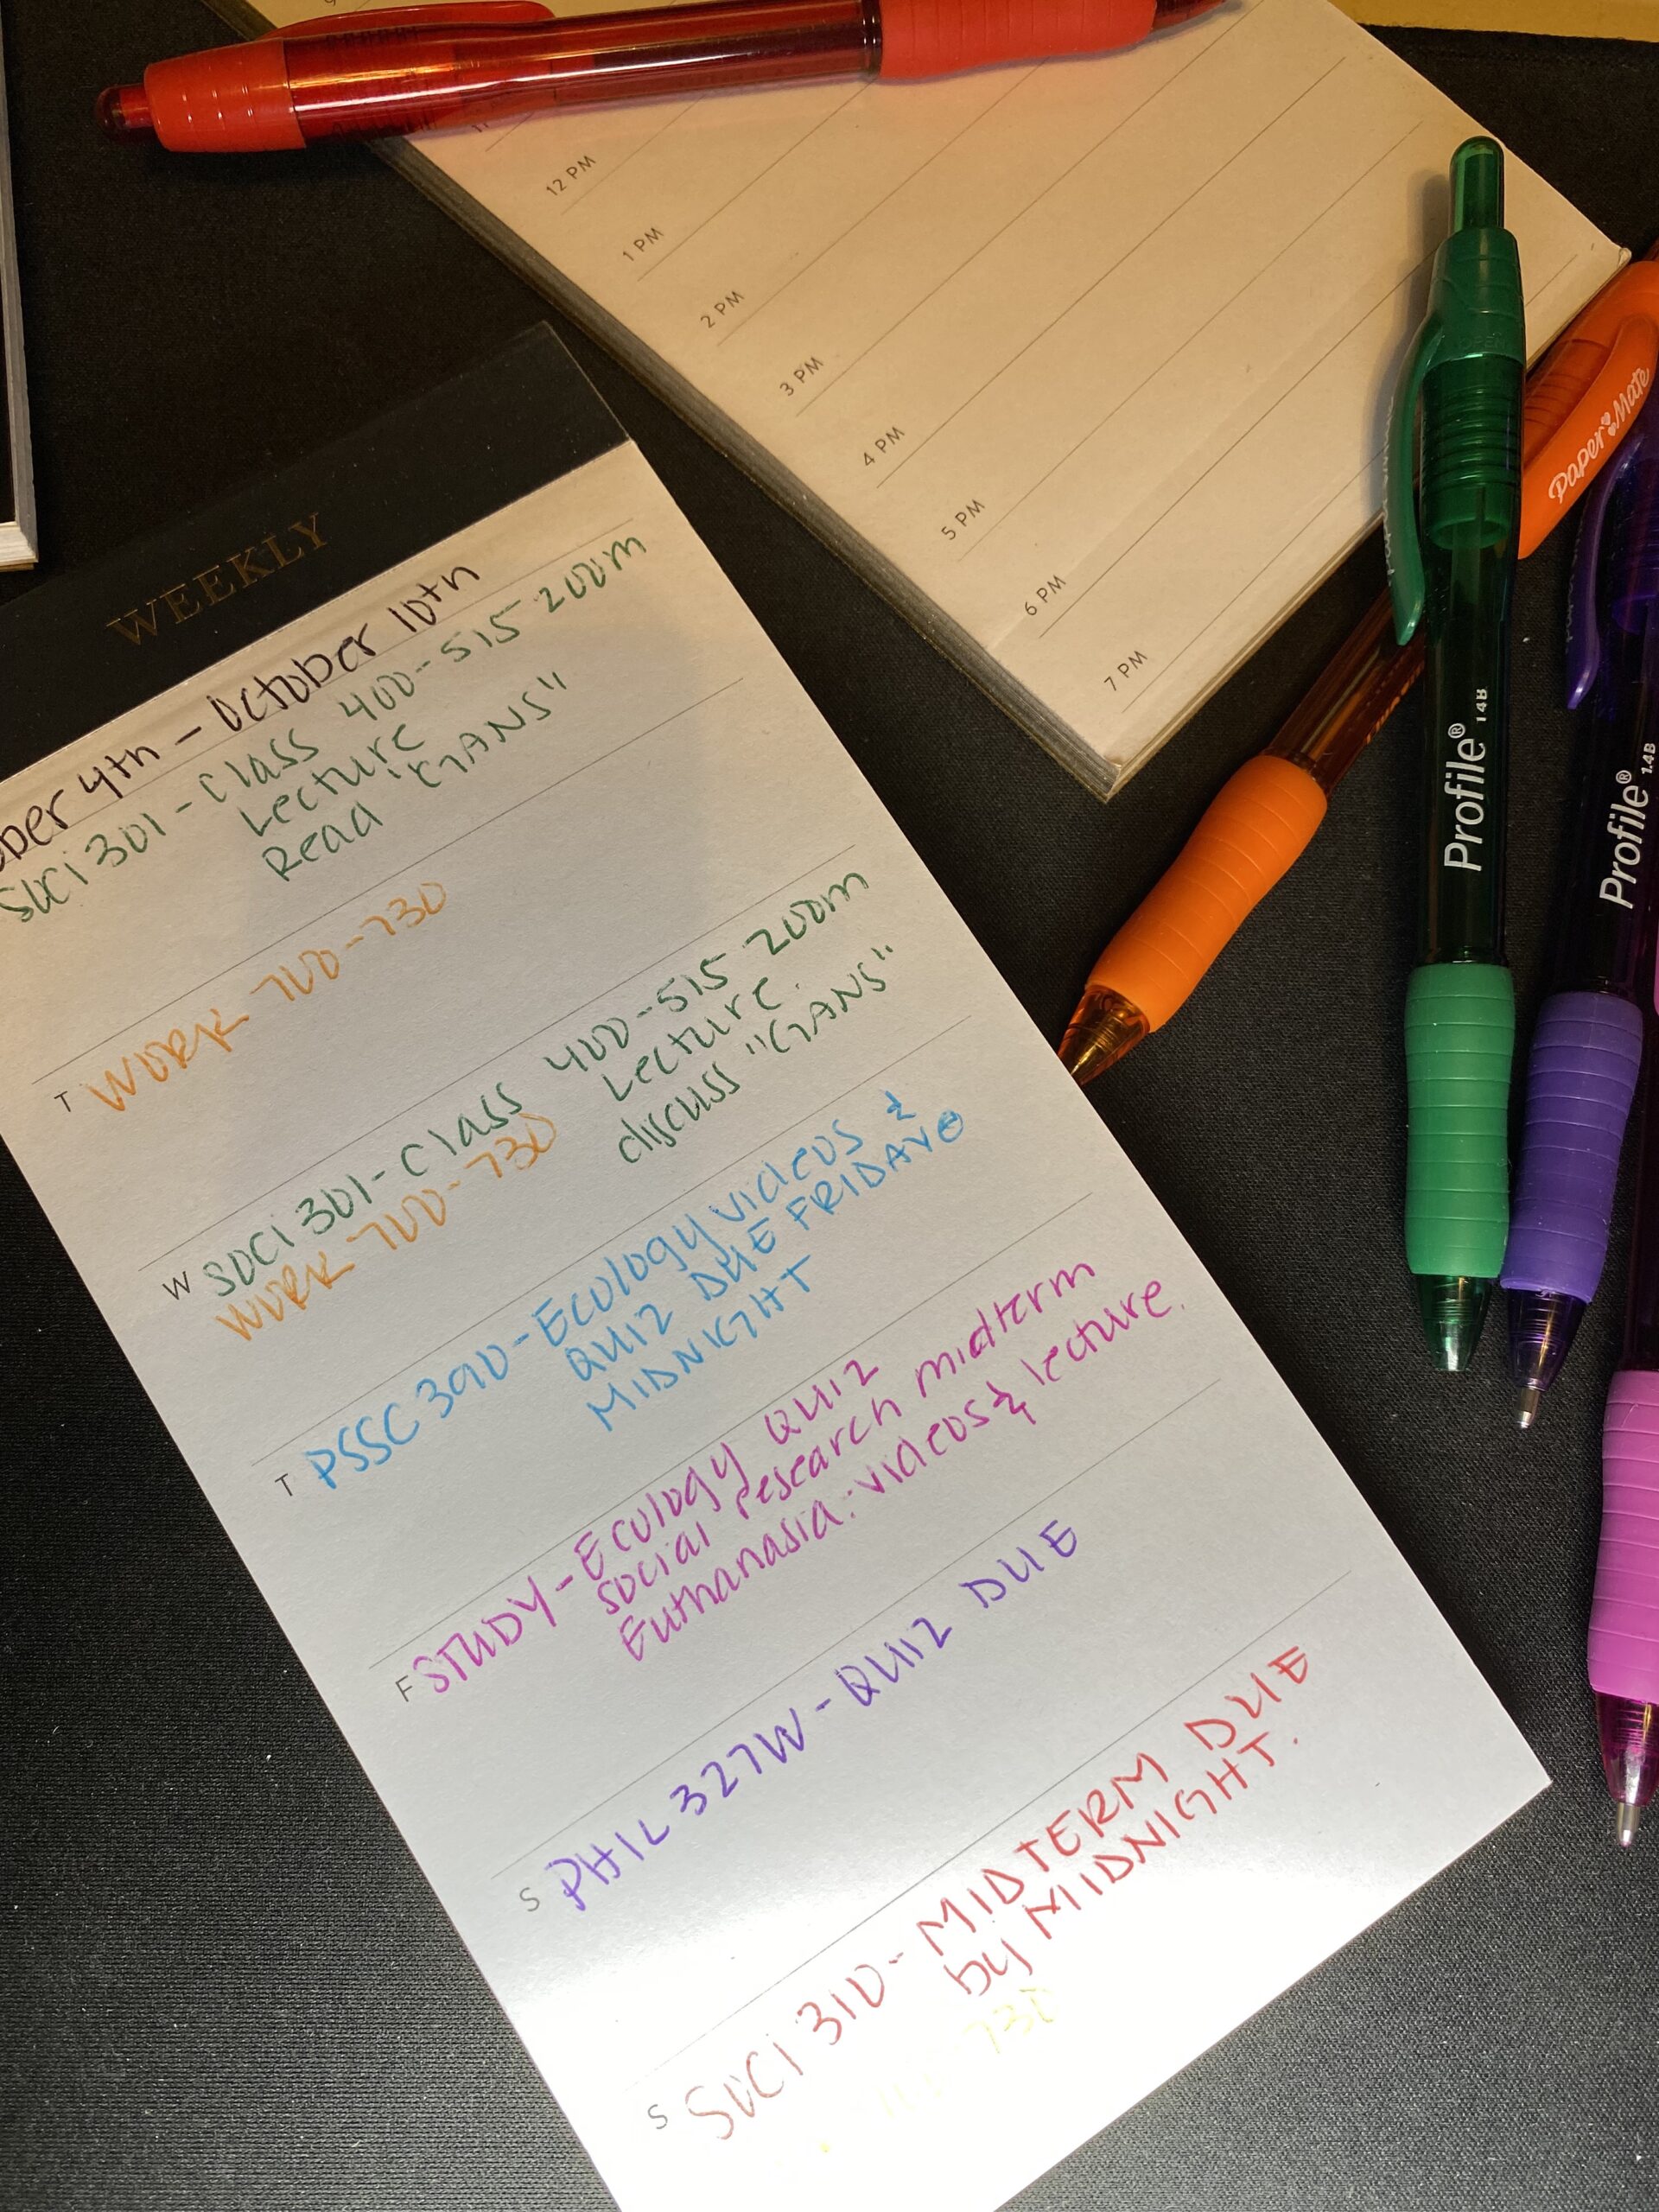 12 PM
1 PM
2 PM
3 PM
4 PM
5 PM
6 PM
7 PM
WEEKLY
4th - October 10th
SOCI 301 - Class 400-515 zoom
Lecture
Read "GANS"
T WORK 700-730
W SOCI 301 - Class 400-515 zoom
Lecture.
WORK 700-730 discuss "GANS"
T PSSC 390 - Ecology videos &
QUIZ DUE FRIDAY @
MIDNIGHT
F STUDY - Ecology QUIZ
social research midterm
Euthanasia: videos & lecture.
S PHIL 327W - QUIZ DUE
S SOCI 310 - MIDTERM DUE
by MIDNIGHT.
730
Paper Mate
Profile® 1.4B
Profile® 1.4B